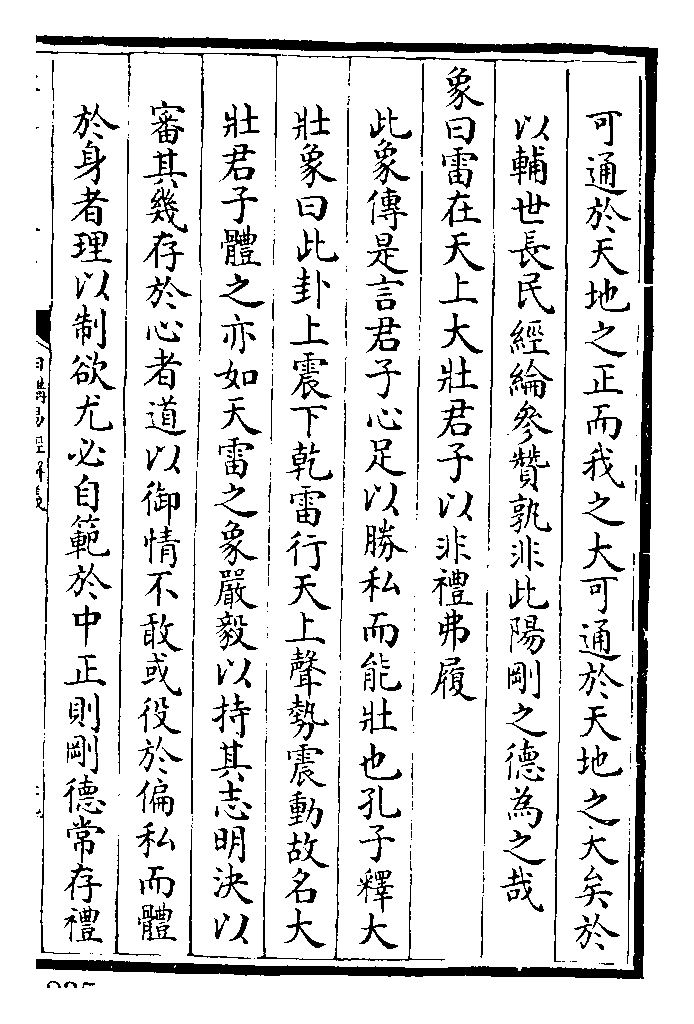 可通於天地之正而我之大可通於天地之大矣於
以輔世長民經綸參贊孰非此陽剛之德為之哉
象曰雷在天上大壯君子以非禮弗履
此象傳是言君子心足以勝私而能壯也孔子釋大
壯象曰此卦上震下乾雷行天上聲勢震動故名大
壯君子體之亦如天雷之象嚴毅以持其志明決以
審其幾存於心者道以御情不敢或役於偏私而體
於身者理以制欲尤必自範於中正則剛德常存禮
日講易經解義